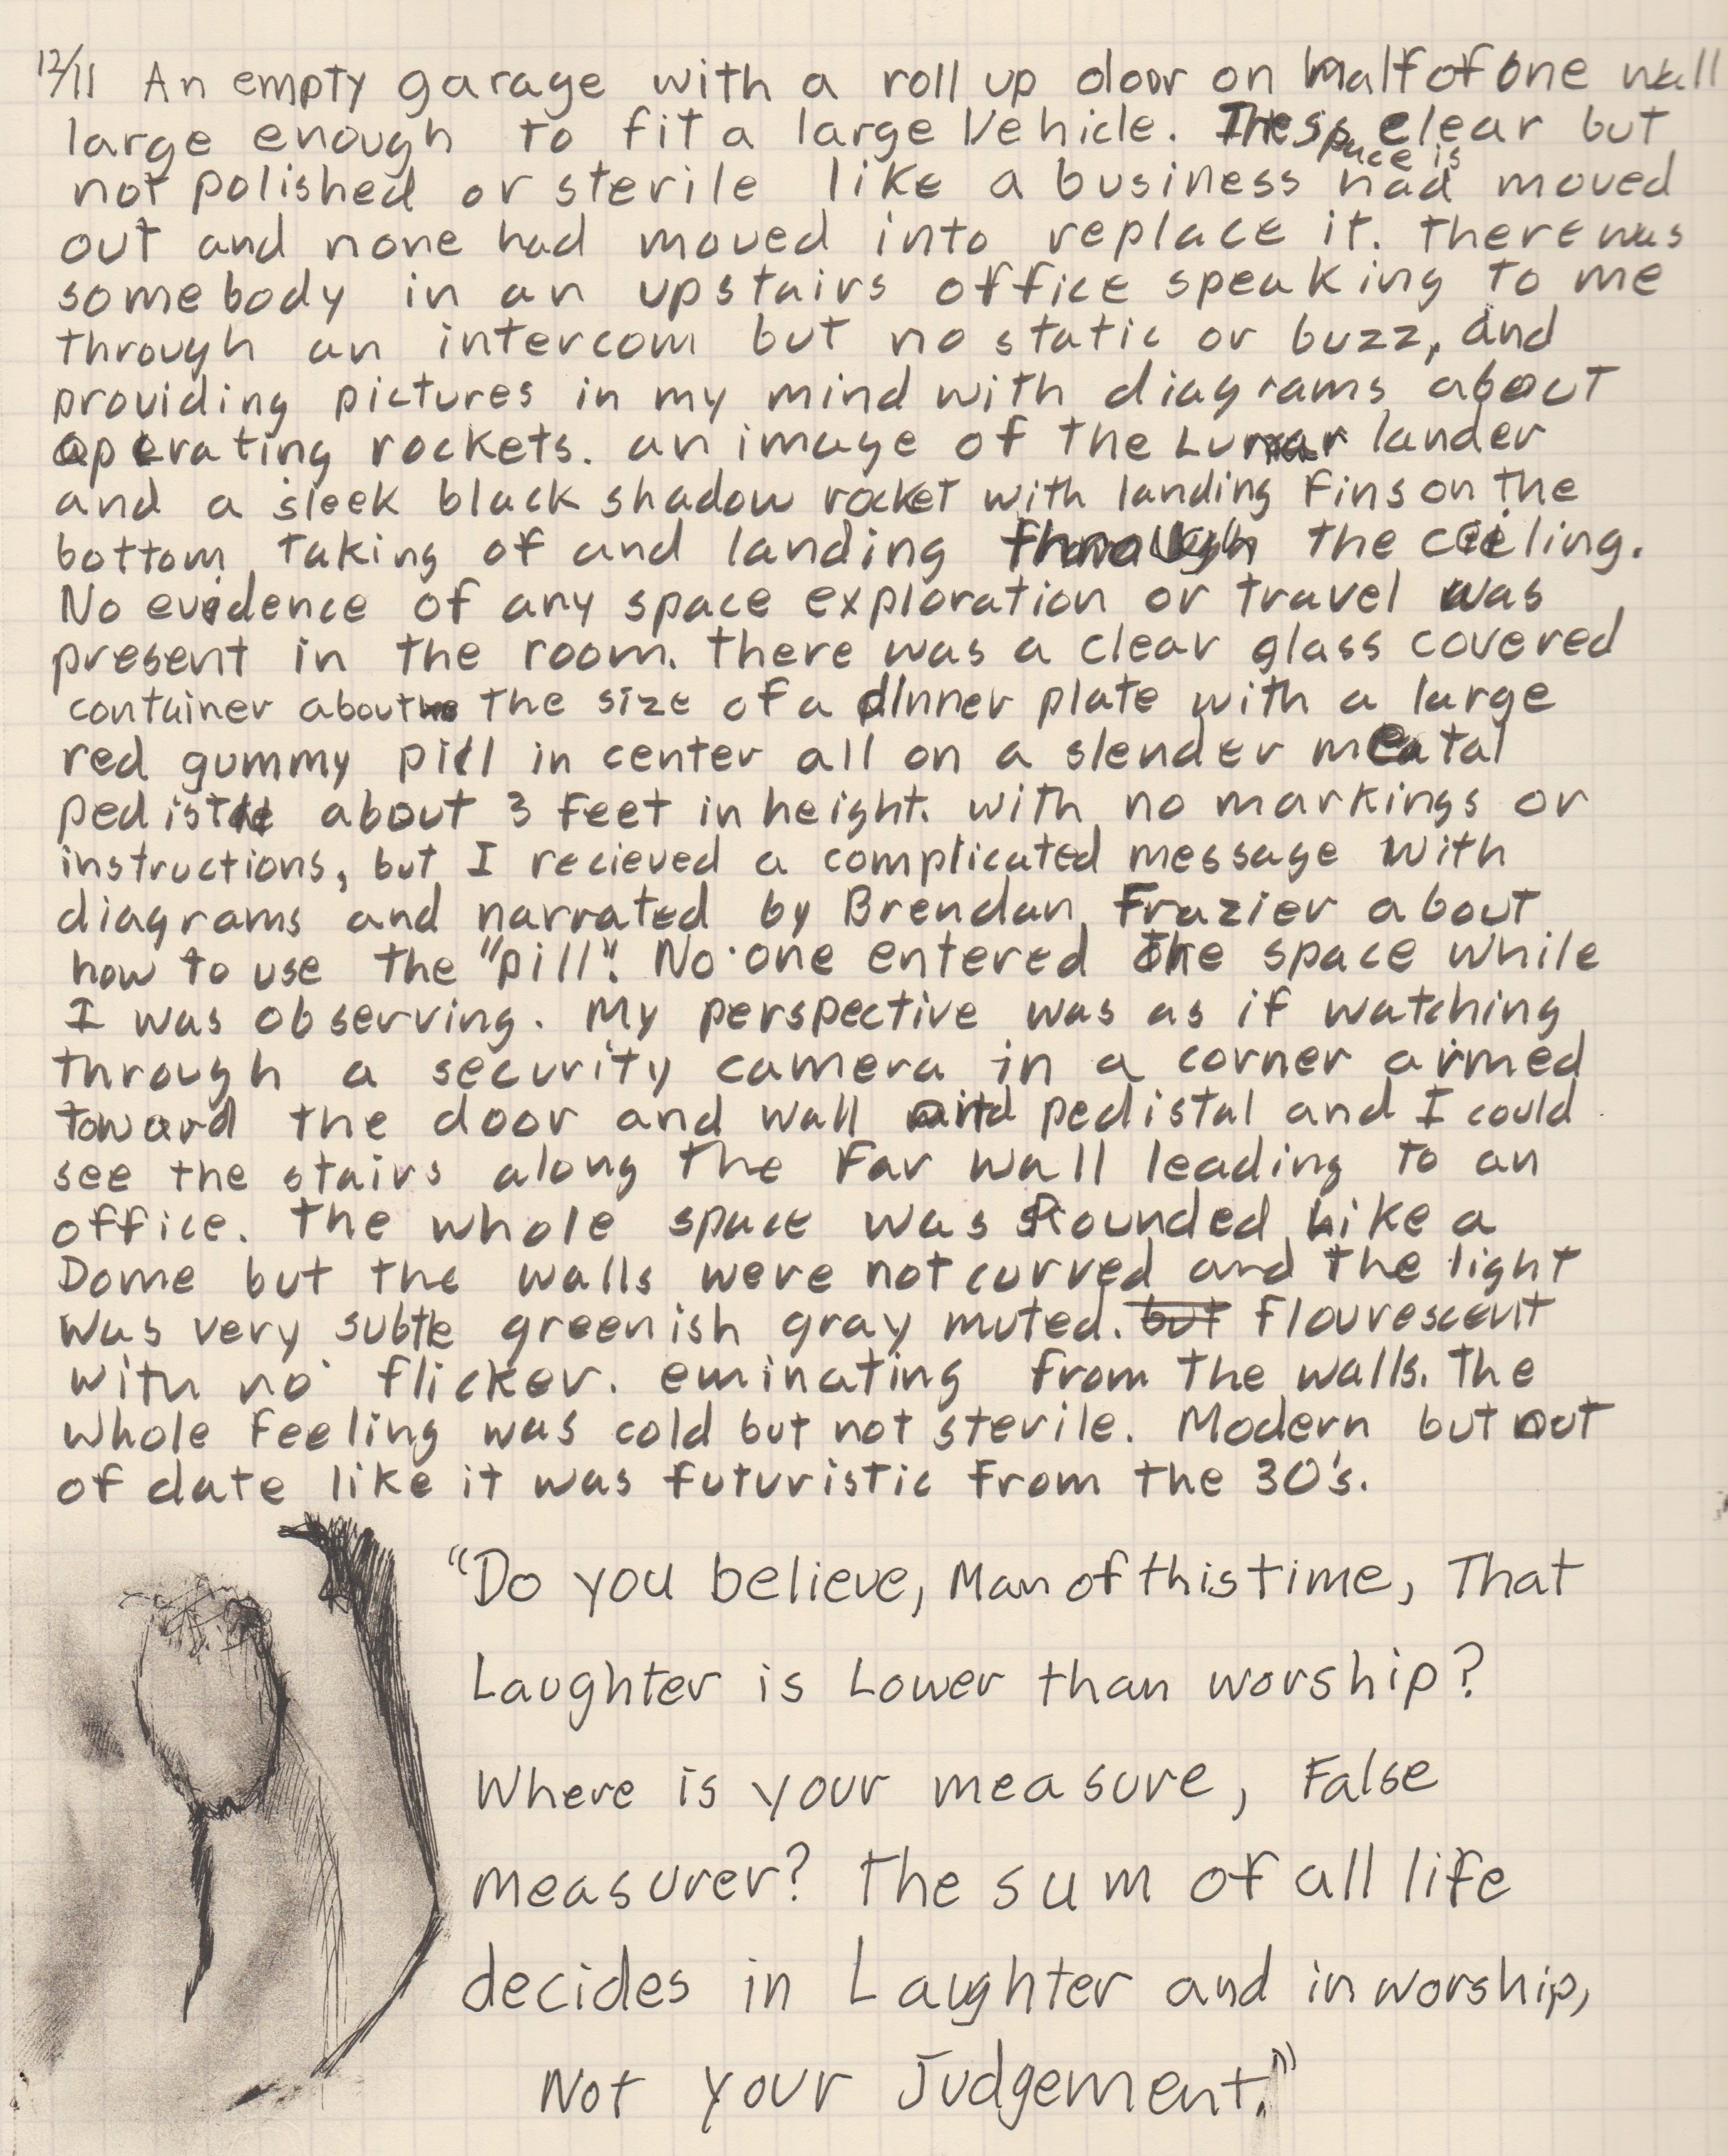 12/11 An empty garage with a roll up door on half of one wall
large enough to fit a large Vehicle. The space is clear but
not polished or sterile like a business had moved
out and none had moved into replace it. there was
somebody in an upstairs office speaking to me
through an intercom but no static or buzz, and
providing pictures in my mind with diagrams about
operating rockets. an image of the Lunar lander
and a sleek black shadow rocket with landing fins on the
bottom taking of and landing through the ceiling.
No evidence of any space exploration or travel was
present in the room. there was a clear glass covered
container about the size of a dinner plate with a large
red gummy pill in center all on a slender metal
pedistal about 3 feet in height. with no markings or
instructions, but I recieved a complicated message with
diagrams and narrated by Brendan Frazier about
how to use the "pill". No one entered the space while
I was observing. My perspective was as if watching
through a security camera in a corner aimed
toward the door and wall and pedistal and I could
see the stairs along the far wall leading to an
office. the whole space was Rounded Like a
Dome but the walls were not curved and the light
was very subtle greenish gray muted. but flourescent
with no flicker. eminating from the walls. the
whole feeling was cold but not sterile. Modern but out
of date like it was futuristic from the 30's.
"Do you believe, Man of this time, That
Laughter is Lower than worship?
Where is your measure, False
measurer? the sum of all life
decides in Laughter and in worship,
Not your Judgement."